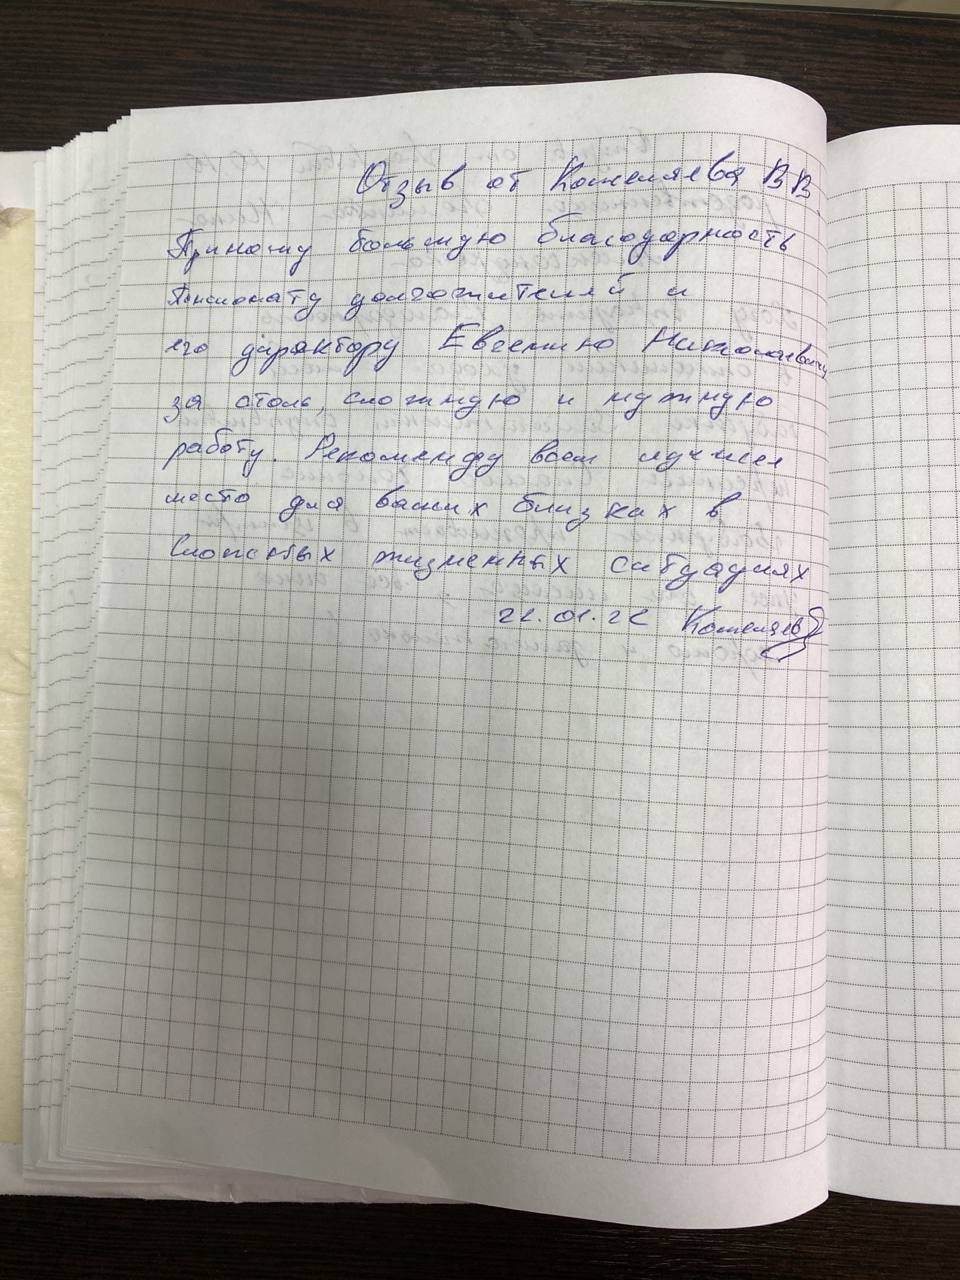 Отзыв от Кожеляева В В.
Приношу большую благодарность
Пансионату долгожителей и
его директору Евгению Николаевичу
за столь сложную и нужную
работу. Рекомендую всем лучшее
место для ваших близких в
сложных жизненных ситуациях
22.01.22 Кожеляев